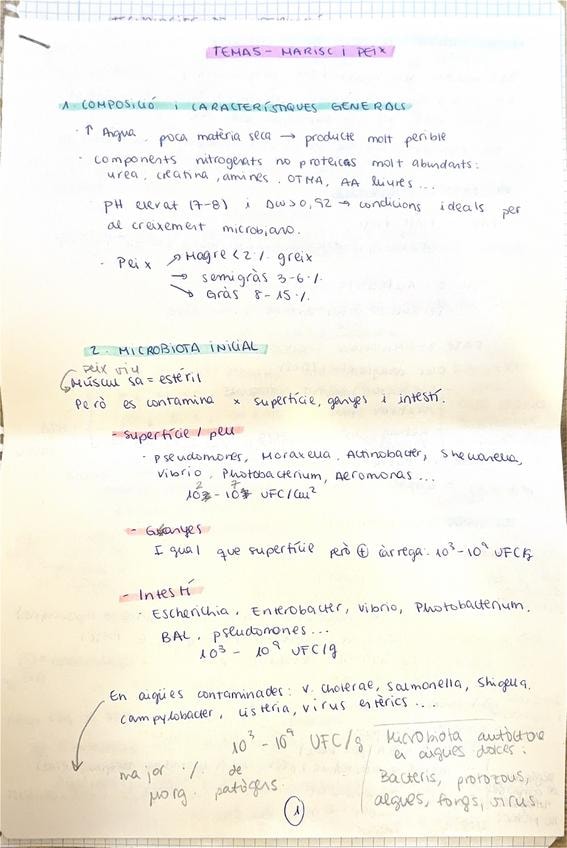 TEMA 5 - MARISC I PEIX
1. COMPOSICIÓ I CARACTERÍSTIQUES GENERALS
· ↑ Aigua, poca matèria seca → producte molt perible
· components nitrogenats no proteics molt abundants:
urea, creatina, amines, OTMA, AA lliures...
· pH elevat (7-8) i aw > 0,92 → condicions ideals per
al creixement microbiano.
· Peix → Magre < 2% greix
→ semigràs 3-6%
→ Gràs 8-15%
2. MICROBIOTA INICIAL
peix viu
Múscul sa = estéril
Però es contamina x superfície, ganyes i intestí.
- Superfície / pell
· Pseudomones, Moraxella, Actinobacter, Shewanella,
Vibrio, Photobacterium, Aeromonas...
10² - 10⁷ UFC/cm²
- Ganyes
Igual que superfície però ⊕ càrrega: 10³ - 10⁹ UFC/g
- Intestí
· Escherichia, Enterobacter, Vibrio, Photobacterium,
BAL, pseudomones...
10³ - 10⁹ UFC/g
En aigües contaminades: V. cholerae, Salmonella, Shigella,
campylobacter, Listeria, virus entèrics...
10³ - 10⁹ UFC/g
major % de
morg. patògens.
Microbiota autòctona
en aigües dolces:
Bacteris, protozous,
algues, fongs, virus
1